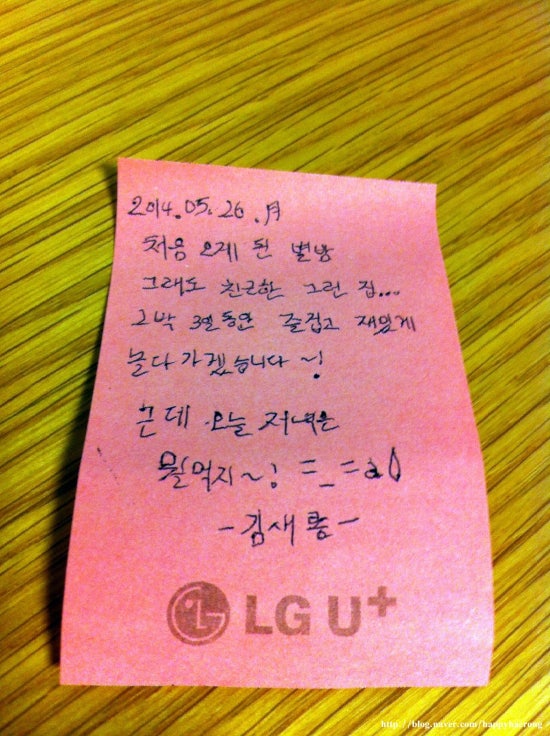 2014.05.26.月
처음 오게 된 별방
그래도 친근한 그런 집...
2박 3일동안 즐겁고 재밌게
놀다가겠습니다~!
근데 오늘 저녁은
뭘먹지~! =_=a
-김새롬-
LG U+